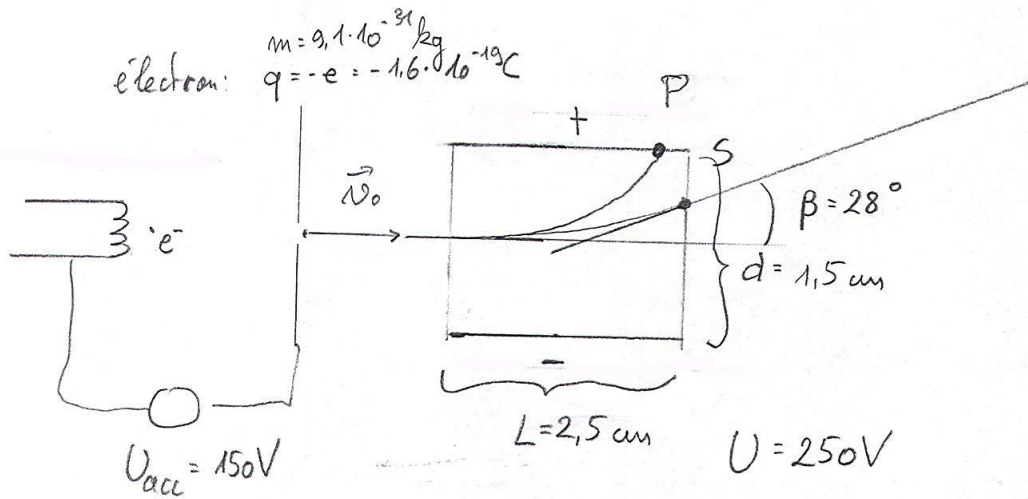 m = 9,1·10⁻³¹ kg
électron: q = -e = -1,6·10⁻¹⁹ C
P
+
S
v⃗₀
β = 28°
e⁻
d = 1,5 cm
-
L = 2,5 cm
U = 250V
Uacc = 150V